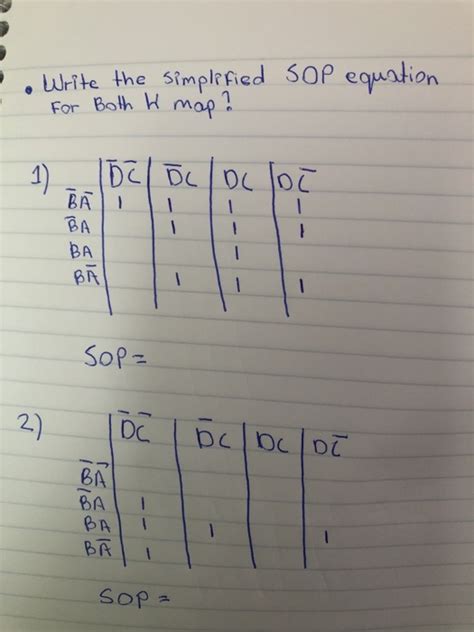 • Write the simplified SOP equation
For Both K map?
1) D̅C̅ D̅C DC DC̅
B̅A̅ 1 1 1 1
B̅A 1 1 1
BA 1
BA̅ 1 1 1
SOP=
2) D̅C̅ D̅C DC DC̅
B̅A̅
B̅A 1
BA 1 1 1
BA̅ 1
SOP =